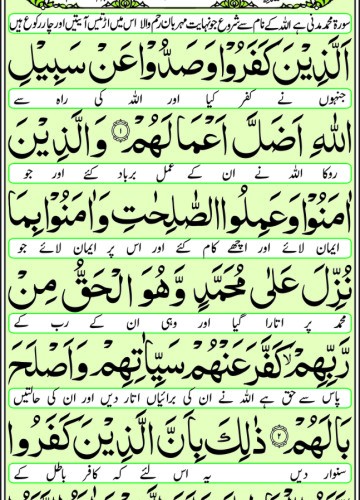 سورۃ محمد مدنی ہے اللہ کے نام سے شروع جو نہایت مہربان رحم والا اس میں اڑتیس آیتیں اور چار رکوع ہیں
اَلَّذِیْنَ كَفَرُوْا وَصَدُّوْا عَنْ سَبِیْلِ
جنہوں نے کفر کیا اور اللہ کی راہ سے
اللّٰهِ اَضَلَّ اَعْمَالَهُمْ ﴿۱﴾ وَالَّذِیْنَ
روکا اللہ نے ان کے عمل برباد کئے اور جو
اٰمَنُوْا وَعَمِلُوا الصّٰلِحٰتِ وَاٰمَنُوْا بِمَا
ایمان لائے اور اچھے کام کئے اور اس پر ایمان لائے جو
نُزِّلَ عَلٰی مُحَمَّدٍ وَّهُوَ الْحَقُّ مِنْ
محمد پر اتارا گیا اور وہی ان کے رب کے
رَّبِّهِمْ ۙ كَفَّرَ عَنْهُمْ سَیِّاٰتِهِمْ وَاَصْلَحَ
پاس سے حق ہے اللہ نے ان کی برائیاں اتار دیں اور ان کی حالتیں
بَالَهُمْ ﴿۲﴾ ذٰلِكَ بِاَنَّ الَّذِیْنَ كَفَرُوا
سنوار دیں یہ اس لئے کہ کافر باطل کے